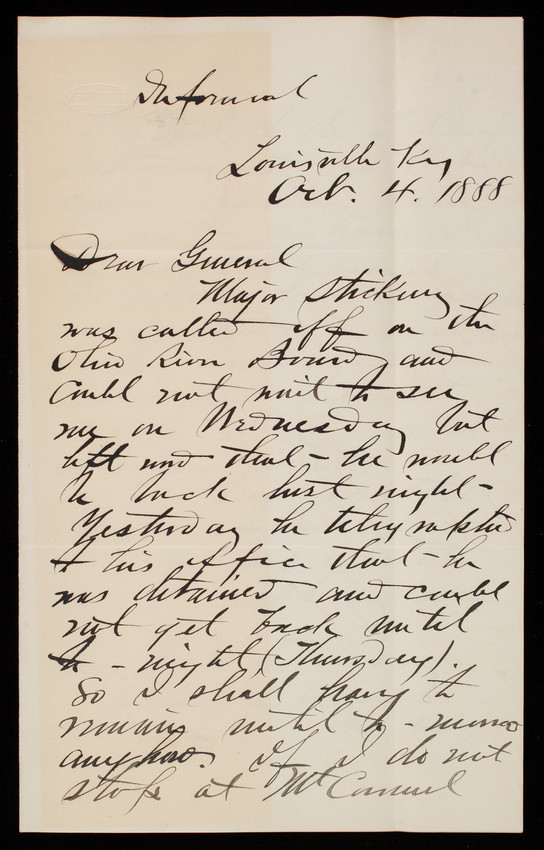 Informal
Louisville Ky
Oct. 4. 1888
Dear General
Major Stickney
was called off on the
Ohio River Board and
could not wait to see
me on Wednesday but
left word that he would
be back last night -
Yesterday he telegraphed
to his office that he
was detained and could
not get back until
to-night (Thursday).
So I shall have to
remain until to-morrow
anyhow. If I do not
stop at Mt Carmel